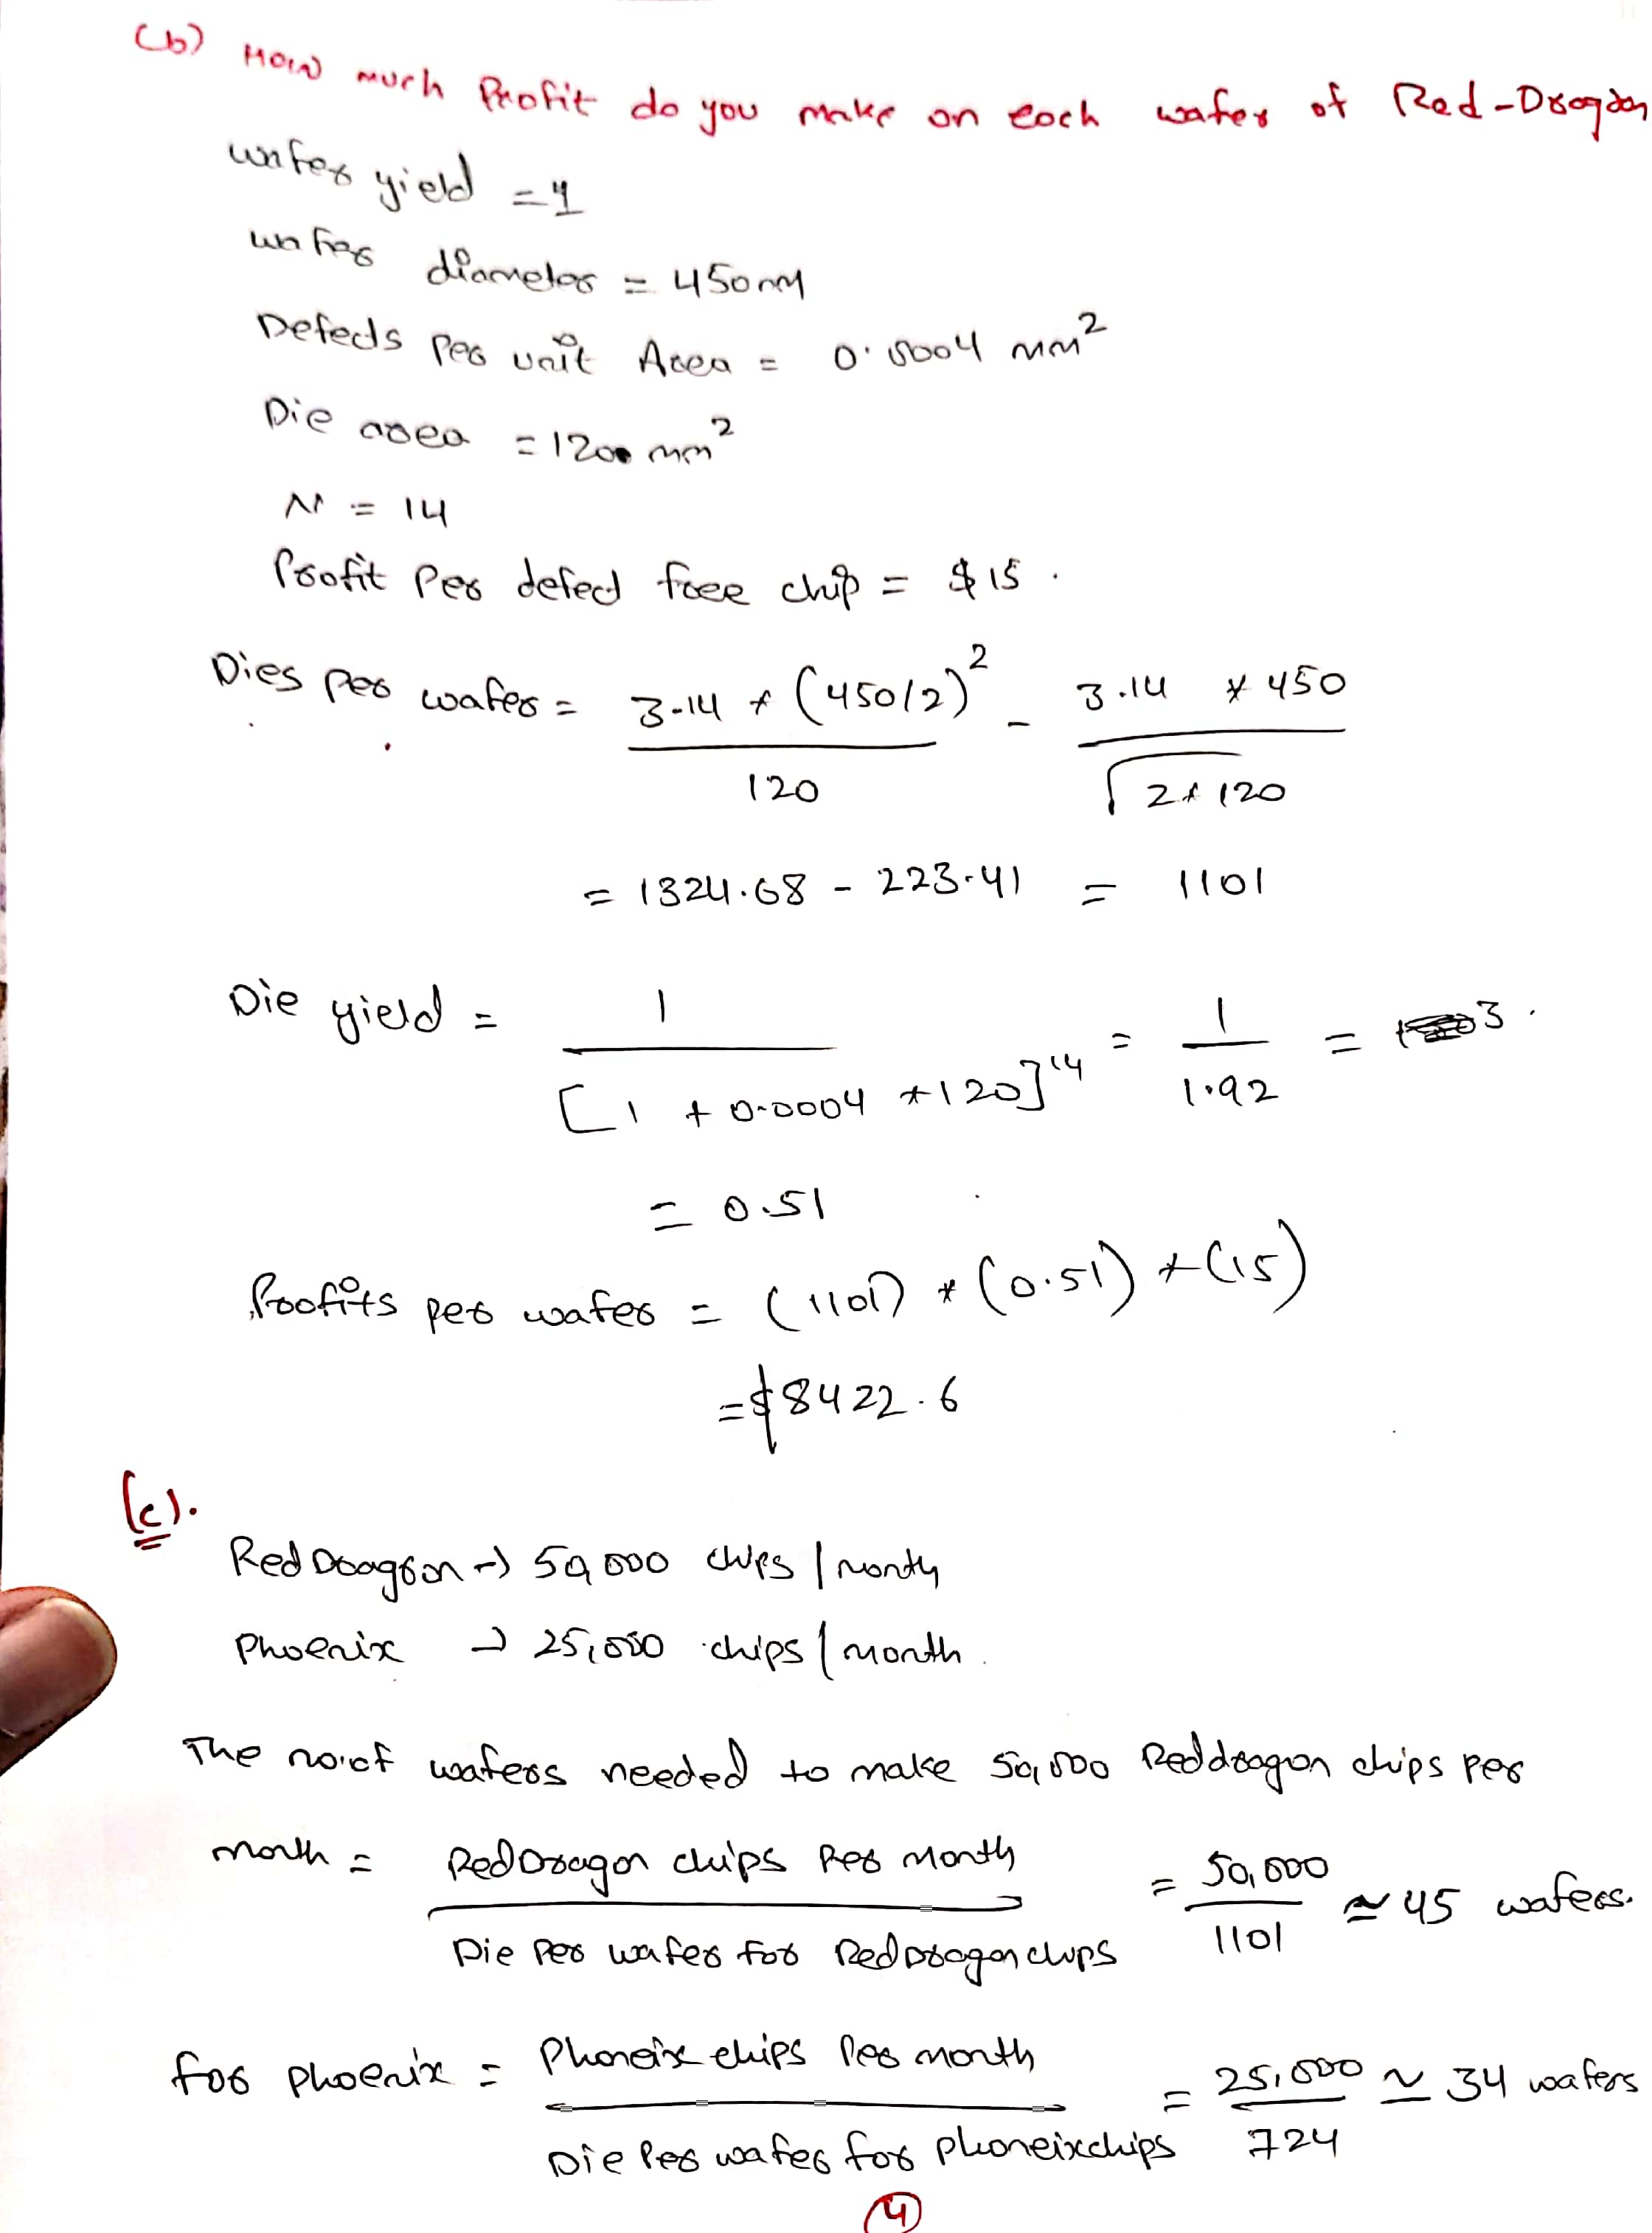 (b) How much Profit do you make on each wafer of Red-Dragon
wafer yield = 1
wafer diameter = 450mm
Defects per unit Area = 0.0004 mm²
Die area = 120 mm²
N = 14
Profit per defect free chip = $15.
Dies per wafer = 3.14 * (450/2)² / 120 - 3.14 * 450 / √2*120
= 1324.68 - 223.41 = 1101
Die yield = 1 / [1 + 0.0004 *120]¹⁴ = 1 / 1.92 =
= 0.51
Profits per wafer = (1101) * (0.51) * (15)
= $8422.6
(c).
Red Dragon → 50,000 chips / month
Phoenix → 25,000 chips / month.
The no.of wafers needed to make 50,000 Red dragon chips per
month = Red Dragon chips per month / Die per wafer for Red Dragon chips = 50,000 / 1101 ≃ 45 wafers.
for phoenix = Phoneix chips per month / Die per wafer for phoneix chips = 25,000 / 724 ≃ 34 wafers
4